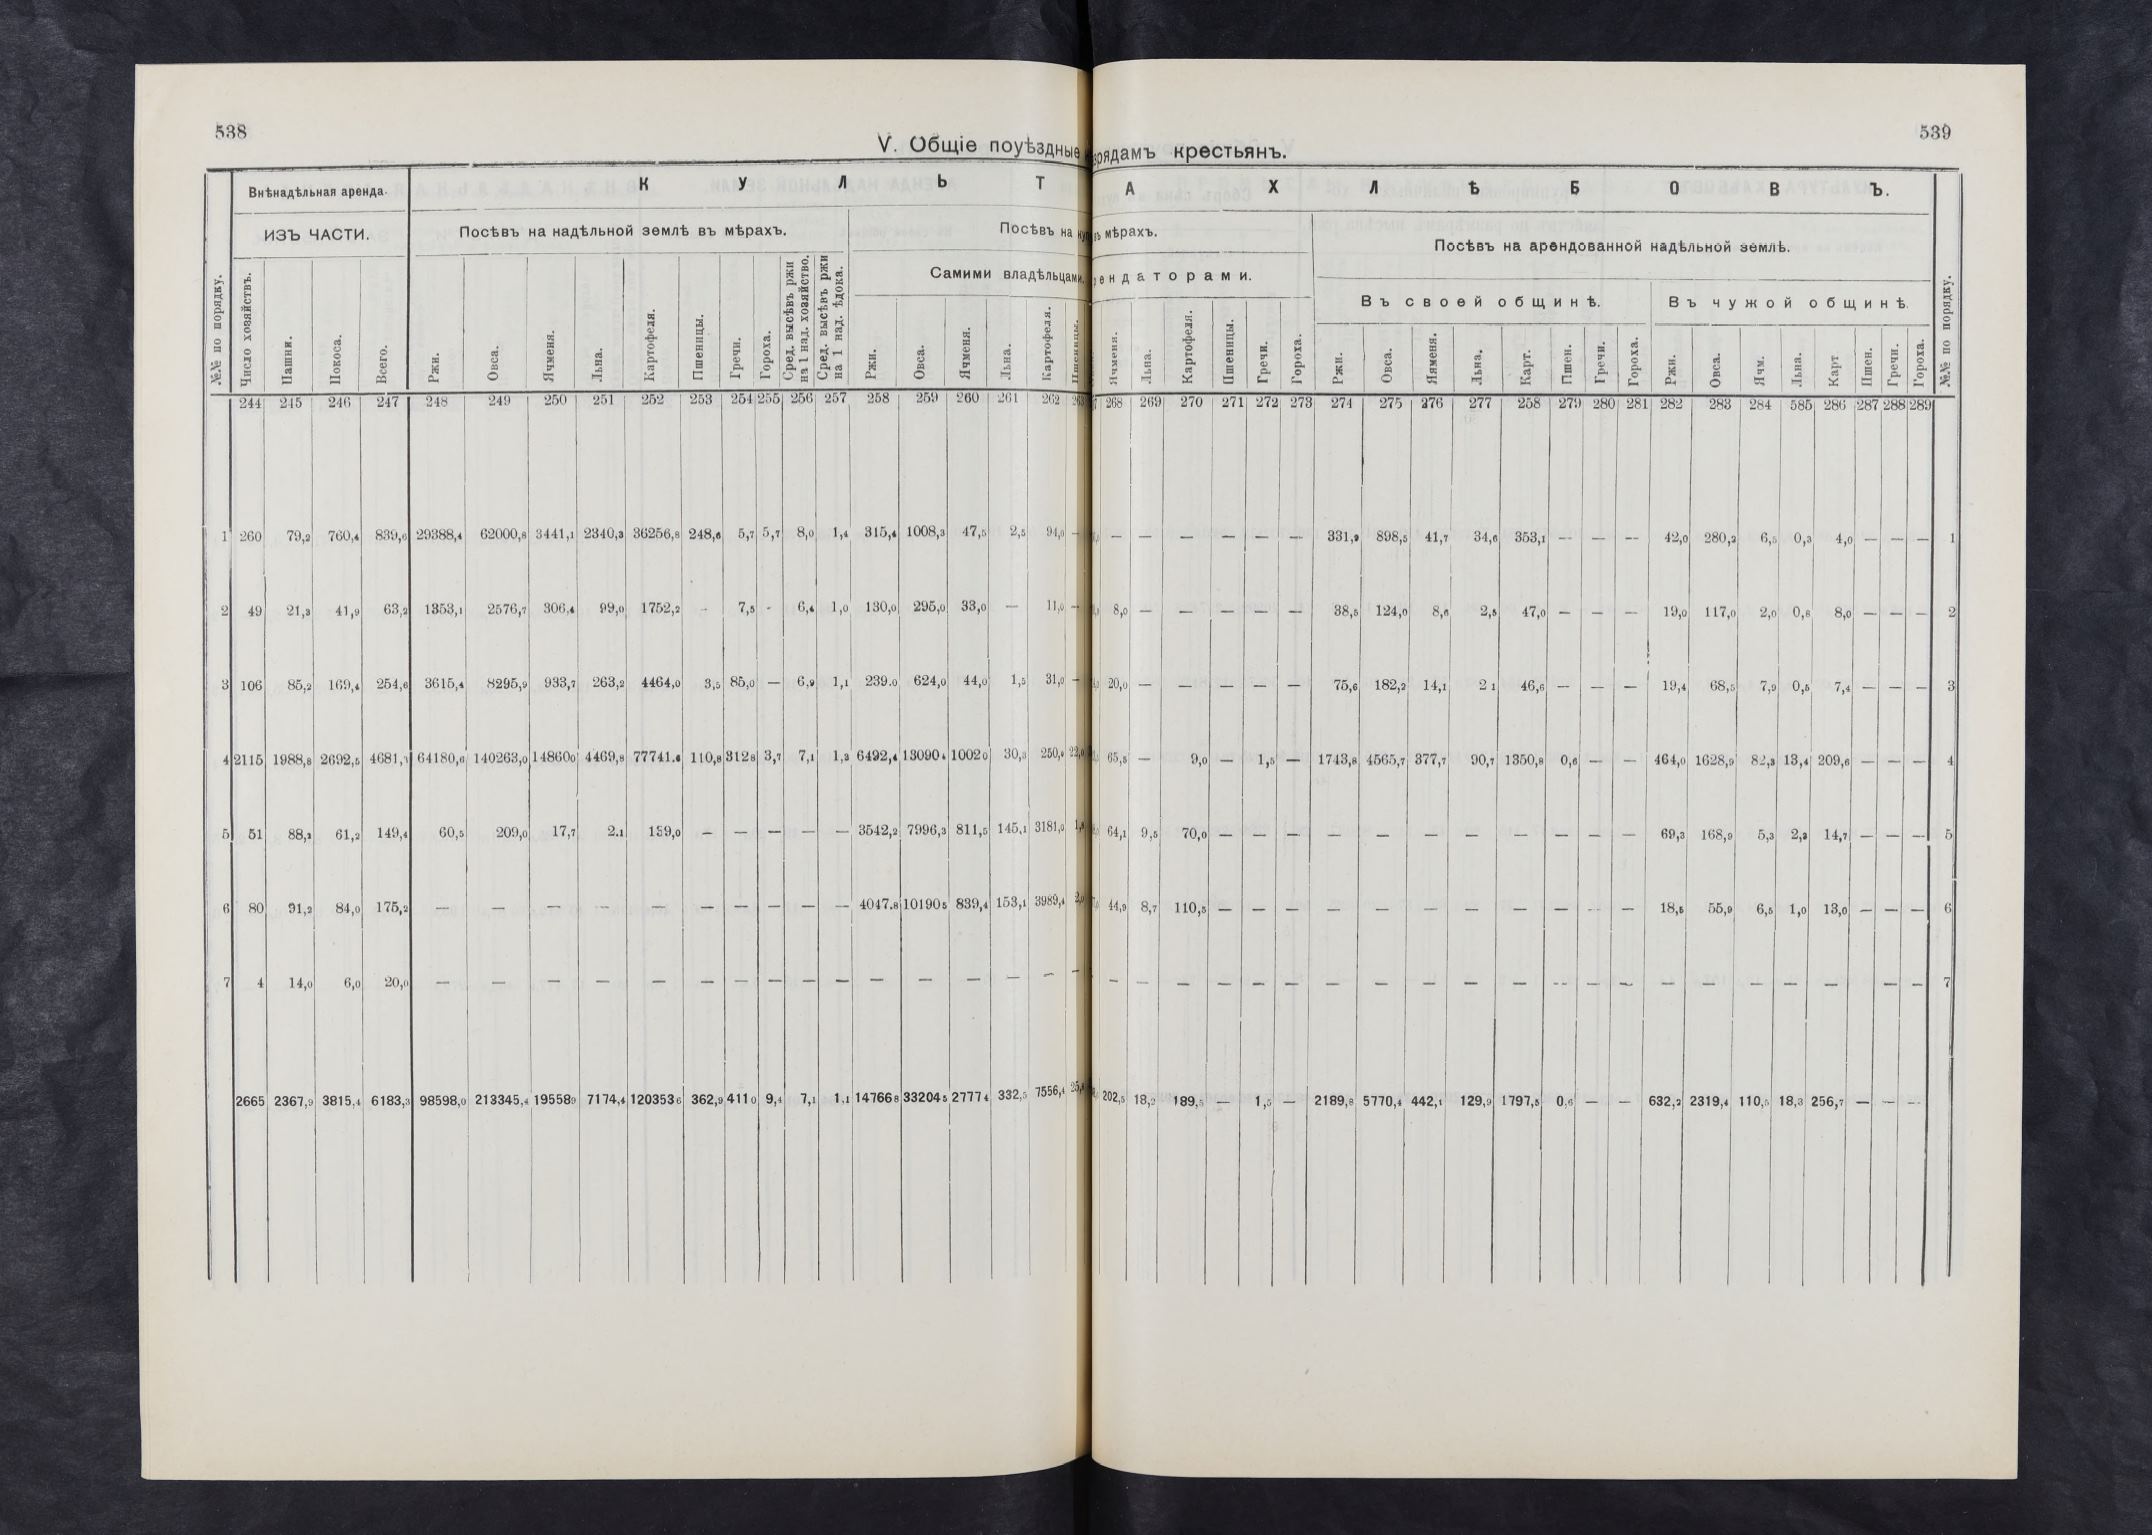 538
539
V. Общіе поуѣздные
рядамъ крестьянъ.
Внѣнадѣльная аренда.
К У Л Ь Т
А Х Л Ѣ Б О В Ъ.
ИЗЪ ЧАСТИ.
Посѣвъ на надѣльной землѣ въ мѣрахъ.
Посѣвъ на
въ мѣрахъ.
Посѣвъ на арендованной надѣльной землѣ.
Самими владѣльцами.
ендаторами.
Въ своей общинѣ.
Въ чужой общинѣ.
№№ по порядку. Число хозяйствъ. Пашни. Покоса. Всего. Ржи. Овса. Ячменя. Льна. Картофеля. Пшеницы. Гречи. Гороха. Сред. высѣвъ ржи на 1 над. хозяйство. Сред. высѣвъ ржи на 1 над. ѣдока. Ржи. Овса. Ячменя. Льна. Картофеля. Пшеницы.
Ячменя. Льна. Картофеля. Пшеницы. Гречи. Гороха. Ржи. Овса. Яяменя. Льна. Карт. Пшен. Гречи. Гороха. Ржи. Овса. Ячм. Льна. Карт Пшен. Гречи. Гороха. №№ по порядку.
244 245 246 247 248 249 250 251 252 253 254 255 256 257 258 259 260 261 262 263
268 269 270 271 272 273 274 275 276 277 258 279 280 281 282 283 284 585 286 287 288 289
1 260 79,2 760,4 839,6 29388,4 62000,8 3441,1 2340,3 36256,8 248,6 5,7 5,7 8,0 1,4 315,4 1008,3 47,5 2,5 94,0 —
— — — — — — 331,9 898,5 41,7 34,6 353,1 — — — 42,0 280,2 6,5 0,3 4,0 — — — 1
2 49 21,3 41,9 63,2 1353,1 2576,7 306,4 99,0 1752,2 - 7,5 - 6,4 1,0 130,0 295,0 33,0 — 11,0 —
8,0 — — — — — 38,5 124,0 8,6 2,5 47,0 — — — 19,0 117,0 2,0 0,8 8,0 — — — 2
3 106 85,2 169,4 254,6 3615,4 8295,9 933,7 263,2 4464,0 3,5 85,0 — 6,9 1,1 239.0 624,0 44,0 1,5 31,0 —
20,0 — — — — — 75,6 182,2 14,1 2 1 46,6 — — — 19,4 68,5 7,9 0,5 7,4 — — — 3
4 2115 1988,8 2692,5 4681,3 64180,6 140263,0 14860 0 4469,8 77741.6 110,8 312 8 3,7 7,1 1,3 6492,4 13090 4 1002 0 30,3 250,0 22,0
65,5 — 9,0 — 1,5 — 1743,8 4565,7 377,7 90,7 1350,8 0,6 — — 464,0 1628,9 82,3 13,4 209,6 — — — 4
5 51 88,2 61,2 149,4 60,5 209,0 17,7 2.1 139,0 — — — — — 3542,2 7996,3 811,5 145,1 3181,0
64,1 9,5 70,0 — — — — — — — — — — — 69,3 168,9 5,3 2,3 14,7 — — — 5
6 80 91,2 84,0 175,2 — — — — — — — — — — 4047.8 10190 5 839,4 153,1 3989,4 2,0
44,9 8,7 110,5 — — — — — — — — — — — 18,5 55,9 6,5 1,0 13,0 — — — 6
7 4 14,0 6,0 20,0 — — — — — — — — — — — — — — — —
— — — — — — — — — — — — — — — — — — — — — 7
2665 2367,9 3815,4 6183,3 98598,0 213345,4 19558 9 7174,4 120353 6 362,9 411 0 9,4 7,1 1,1 14766 8 33204 5 2777 4 332,5 7556,4
202,5 18,2 189,5 — 1,5 — 2189,8 5770,4 442,1 129,9 1797,5 0,6 — — 632,2 2319,4 110,5 18,3 256,7 — — —